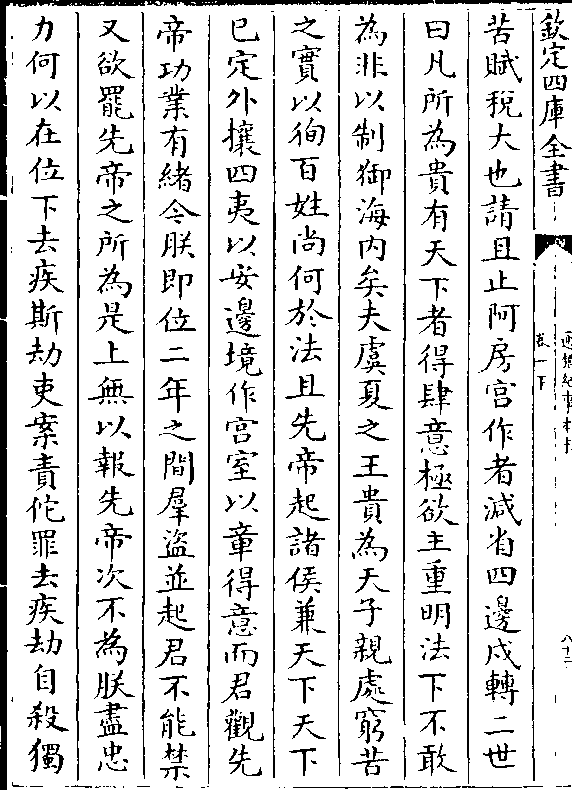 欽定四庫全書
卷一下
八十二
苦賦稅大也請且止阿房宮作者減省四邊戍轉二世
曰凡所為貴有天下者得肆意極欲主重明法下不敢
為非以制御海内矣夫虞夏之王貴為天子親處窮苦
之實以徇百姓尚何於法且先帝起諸侯兼天下天下
已定外攘四夷以安邊境作宮室以章得意而君觀先
帝功業有緒令朕即位二年之間羣盜並起君不能禁
又欲罷先帝之所為是上無以報先帝次不為朕盡忠
力何以在位下去疾斯劫吏案責佗罪去疾劫自殺獨